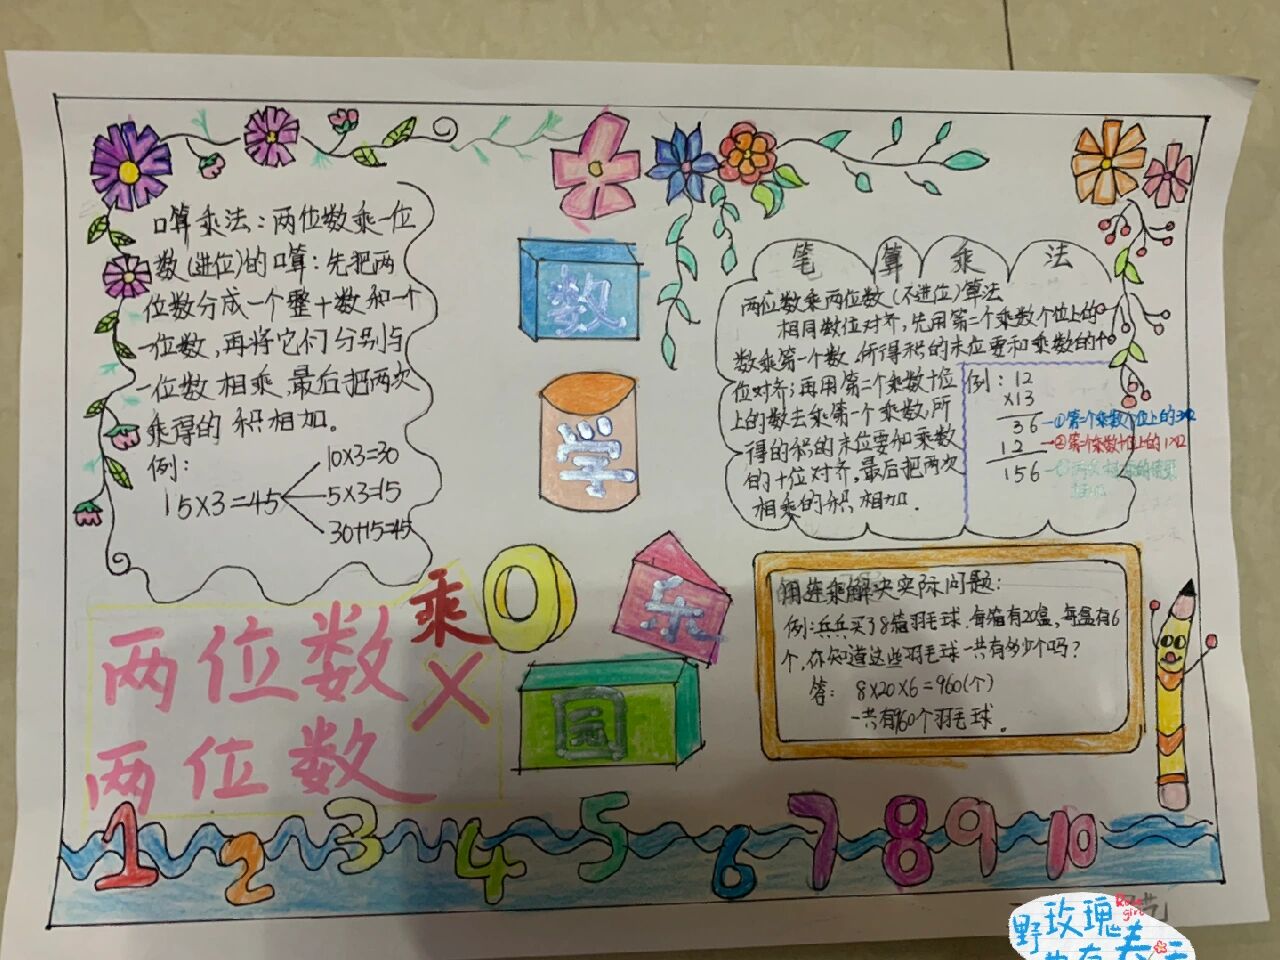 口算乘法：两位数乘一位
数(进位)的口算：先把两
位数分成一个整十数和一个
一位数，再将它们分别与
一位数相乘，最后把两次
乘得的积相加。
例：
15×3=45
10×3=30
5×3=15
30+15=45
数
学
乐
园
笔算乘法
两位数乘两位数(不进位)算法
相同数位对齐，先用第二个乘数个位上的
数乘第一个数，所得积的末位要和乘数的个
位对齐；再用第二个乘数十位
上的数去乘第一个乘数，所
得的积的末位要和乘数
的十位对齐。最后把两次
相乘的积相加。
例：12
×13
36
12
156
①第二个乘数个位上的3×12
②第二个乘数十位上的1×12
用连乘解决实际问题：
例：乒乓买了8箱羽毛球，每箱有20盒，每盒有6
个，你知道这些羽毛球一共有多少个吗？
答：8×20×6=960(个)
一共有960个羽毛球。
两位数乘
×
两位数
1 2 3 4 5 6 7 8 9 10
野玫瑰
Rose
girl
春天